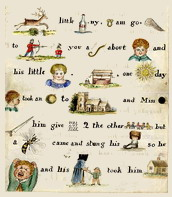 little ny. am go
to you a about and
his little , one day
took an to and Mim
him give 2 the other so but
a came and stung his so he
and his took him